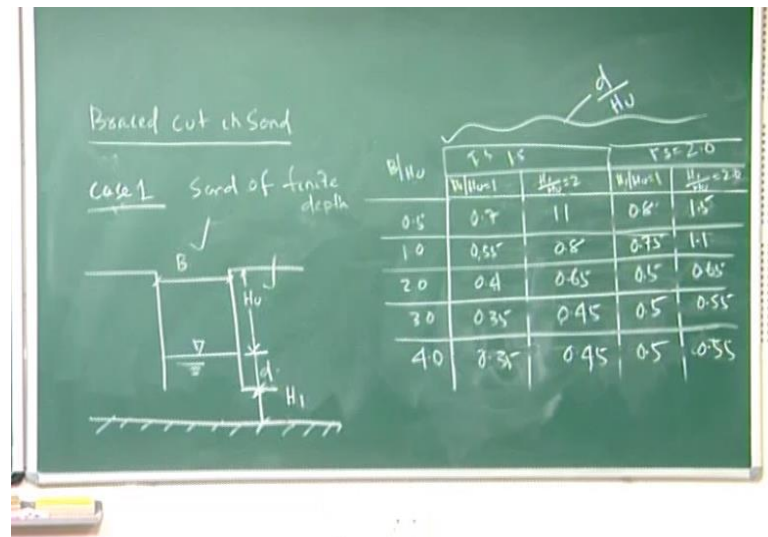 Braced cut in Sand
Case 1 Sand of finite
depth
B
Hu
d
H1
d/Hu
B/Hu FS 1.5 FS=2.0
H1/Hu=1 H1/Hu=2 H1/Hu=1 H1/Hu=2.0
0.5 0.7 1.1 0.8 1.5
1.0 0.55 0.8 0.75 1.1
2.0 0.4 0.65 0.5 0.65
3.0 0.35 0.45 0.5 0.55
4.0 0.35 0.45 0.5 0.55